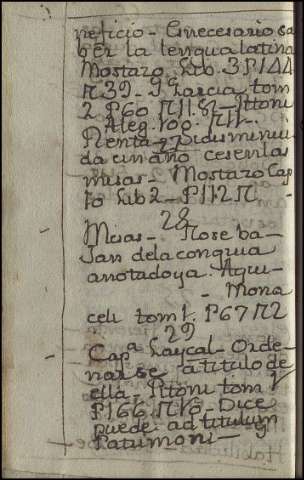 neficio - Es necesario sa
ber la lengua latina
Mostazo Lib. 3 P 144
N 39 - I Garcia tom
2 P 60 N 11.
Aleg. 100. N 11.
Renta - Si disminui
da un año cesen las
misas - Mostazo Cap
10 Lib 2 - P 112 N
28
Misas - No se ba
Jan de la congrua
anotado ya. Aqui
- Mona
celi tom 1. P 67 N 2
29
Capª Laycal - Orde
narse a titulo de
ella - Pittoni tom
P 166 N 16 - Dice
puede ad titulum
Patrimoni -